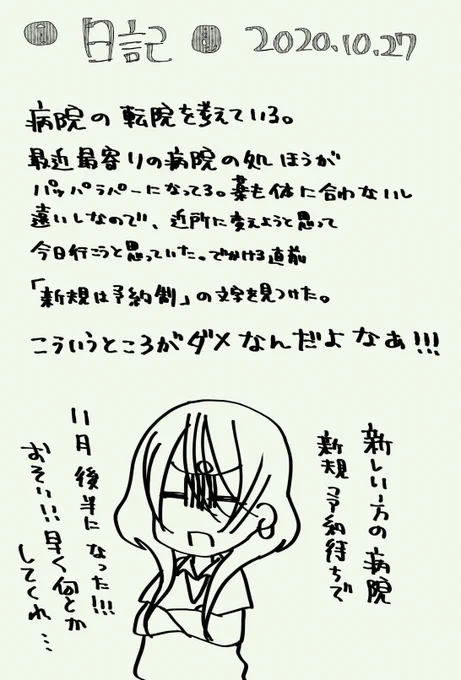 日記 2020.10.27
病院の転院を考えている。
最近最寄りの病院の処ほうが
パッパラパーになってる。薬も体に合わないし
遠いしなので、近所に変えようと思って
今日行こうと思っていた。でかける直前
「新規は予約制」の文字を見つけた。
こういうところがダメなんだよなあ!!!
新しい方の病院
新規予約待ちで
11月後半になった!!!
おそい!!早く何とか
してくれ…